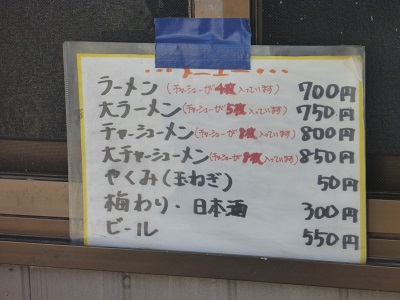 メニュー
ラーメン(チャーシューが4枚入っています) 700円
大ラーメン(チャーシューが5枚入っています) 750円
チャーシューメン(チャーシューが8枚入っています) 800円
大チャーシューメン(チャーシューが9枚入っています) 850円
やくみ(玉ねぎ) 50円
梅わり・日本酒 300円
ビール 550円